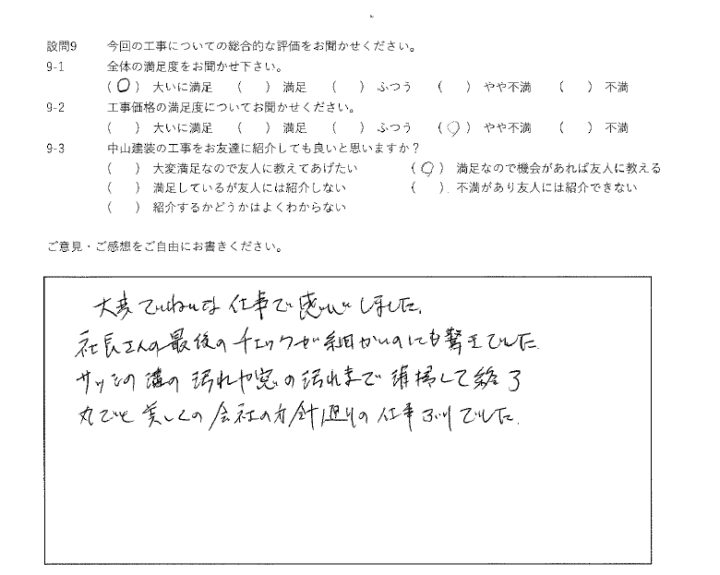 設問9 今回の工事についての総合的な評価をお聞かせください。
9-1 全体の満足度をお聞かせ下さい。
(○) 大いに満足 ( ) 満足 ( ) ふつう ( ) やや不満 ( ) 不満
9-2 工事価格の満足度についてお聞かせください。
( ) 大いに満足 ( ) 満足 ( ) ふつう (○) やや不満 ( ) 不満
9-3 中山建装の工事をお友達に紹介しても良いと思いますか？
( ) 大変満足なので友人に教えてあげたい (○) 満足なので機会があれば友人に教える
( ) 満足しているが友人には紹介しない ( ) 不満があり友人には紹介できない
( ) 紹介するかどうかはよくわからない
ご意見・ご感想をご自由にお書きください。
大変ていねいな仕事で感心しました。
社長さんの最後のチェックが細かいのにも驚きでした
サッシの溝の汚れや窓の汚れまで清掃して終了
丸ごと美しくの会社の方針通りの仕事ぶりでした。